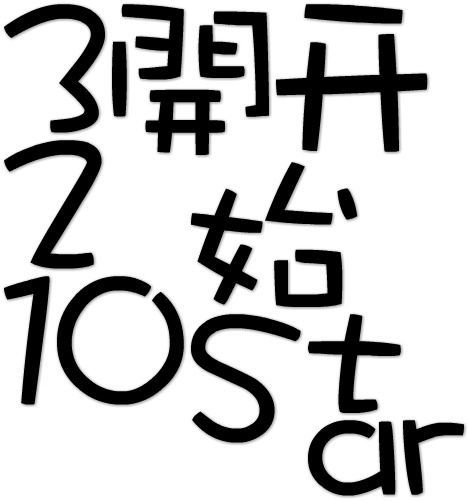 3開开
2始
10Star